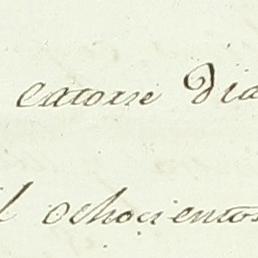 catorse Dia
l ochocientos